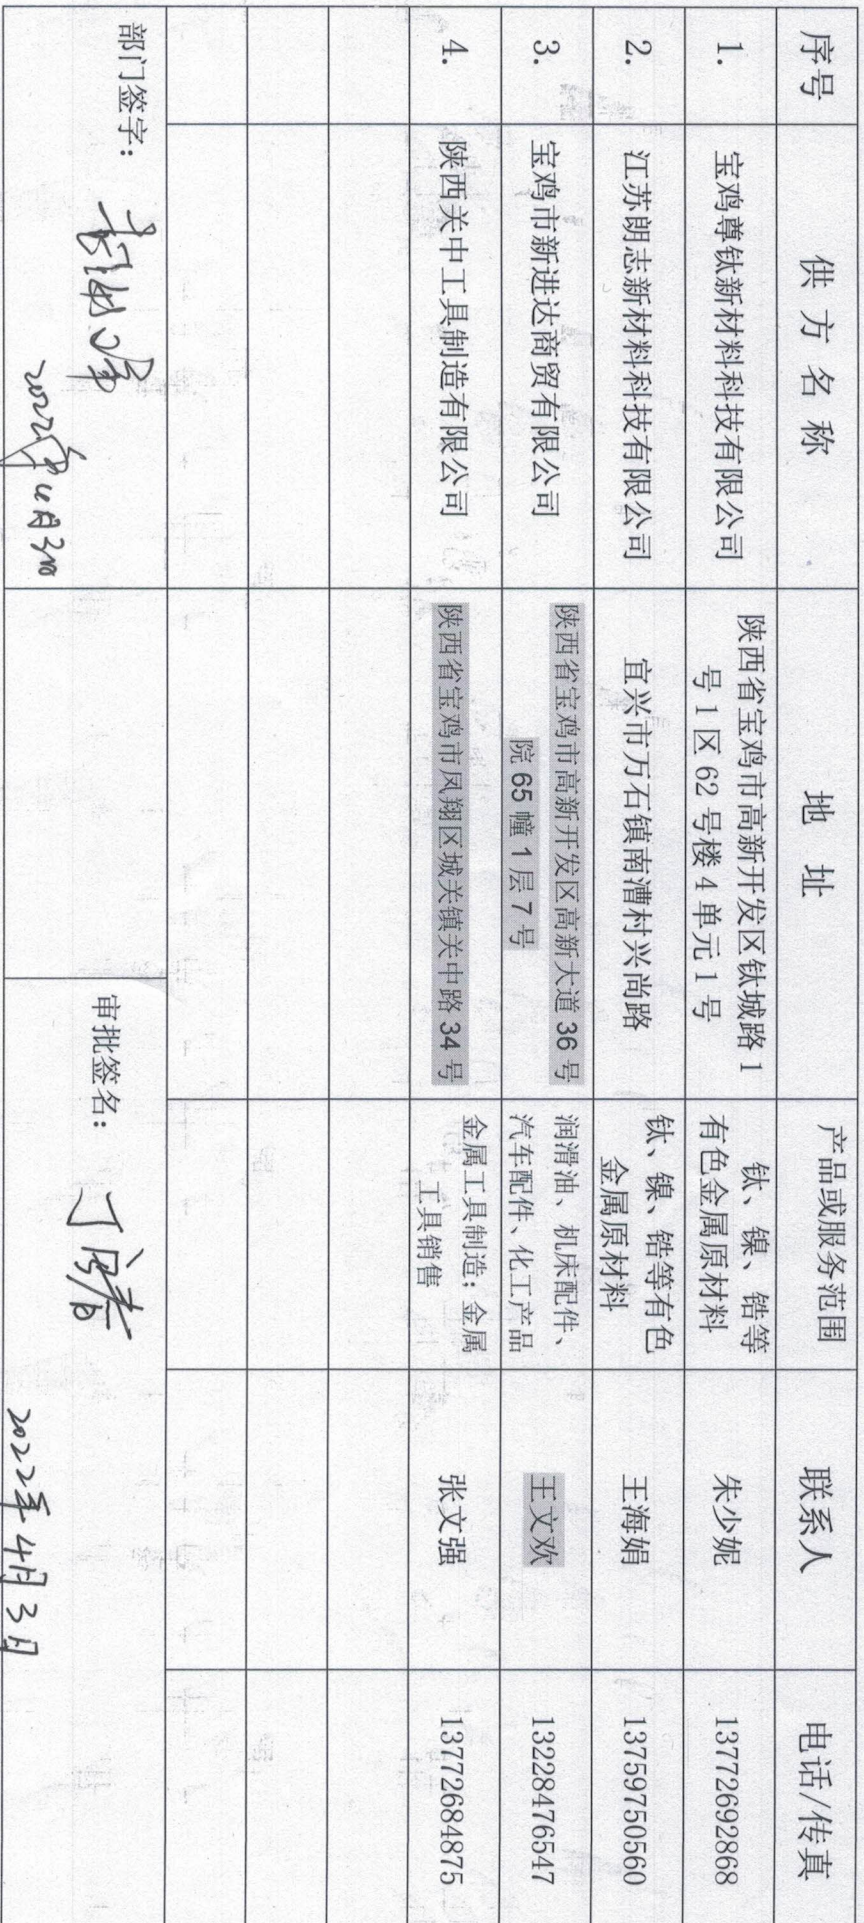 序号 供方名称 地址 产品或服务范围 联系人 电话/传真
1. 宝鸡尊钛新材料科技有限公司 陕西省宝鸡市高新开发区钛城路1
号1区62号楼4单元1号 钛、镍、锆等
有色金属原材料 朱少妮 13772692868
2. 江苏朗志新材料科技有限公司 宜兴市万石镇南漕村兴尚路 钛、镍、锆等有色
金属原材料 王海娟 13759750560
3. 宝鸡市新进达商贸有限公司 陕西省宝鸡市高新开发区高新大道36号
院65幢1层7号 润滑油、机床配件、
汽车配件、化工产品 王文欢 13228476547
4. 陕西关中工具制造有限公司 陕西省宝鸡市凤翔区城关镇关中路34号 金属工具制造；金属
工具销售 张文强 13772684875
部门签字：
2022年4月3日
审批签名：
2022年4月3日